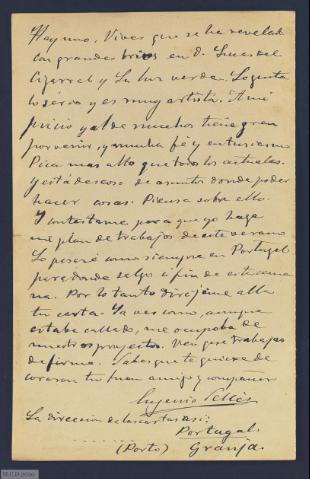 Hay uno, Vives que se ha revelado
con grandes bríos en D. Lucas del
Cigarral y La luz verde. Le gusta
lo serio y es muy artista. A mi
juicio y al de muchos tiene gran
porvenir, y mucha fé y entusiasmo
Pica mas alto que todos los actuales.
y está deseoso de asuntos donde poder
hacer cosas. Piensa sobre ello.
Y contestame para que yo haga
mi plan de trabajos de este verano
Lo pasaré como siempre en Portugal
para donde salgo á fin de esta semana
na. Por lo tanto dirijeme alla
tu carta. Ya ves como, aunque
estaba callado, me ocupaba de
nuestros proyectos. Veo que trabajas
de firme. Sabes que te quiere de
corazon tu buen amigo y compañero
Eugenio Sellés
La direccion de las cartas asi:
Portugal.
(Porto) Granja.